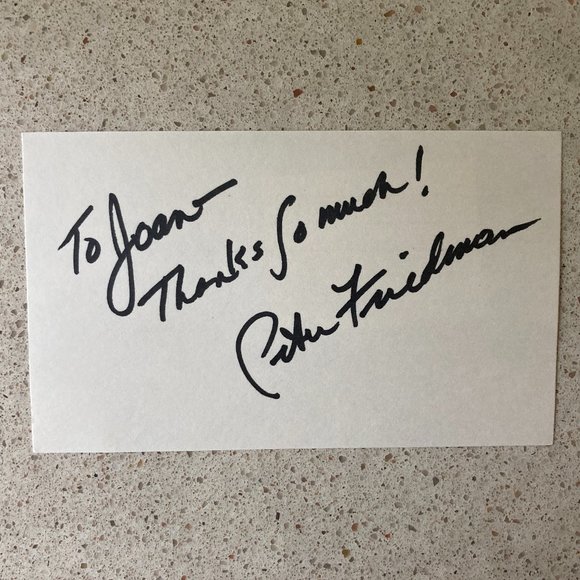 To Joan
Thanks So much!
Peter Friedman